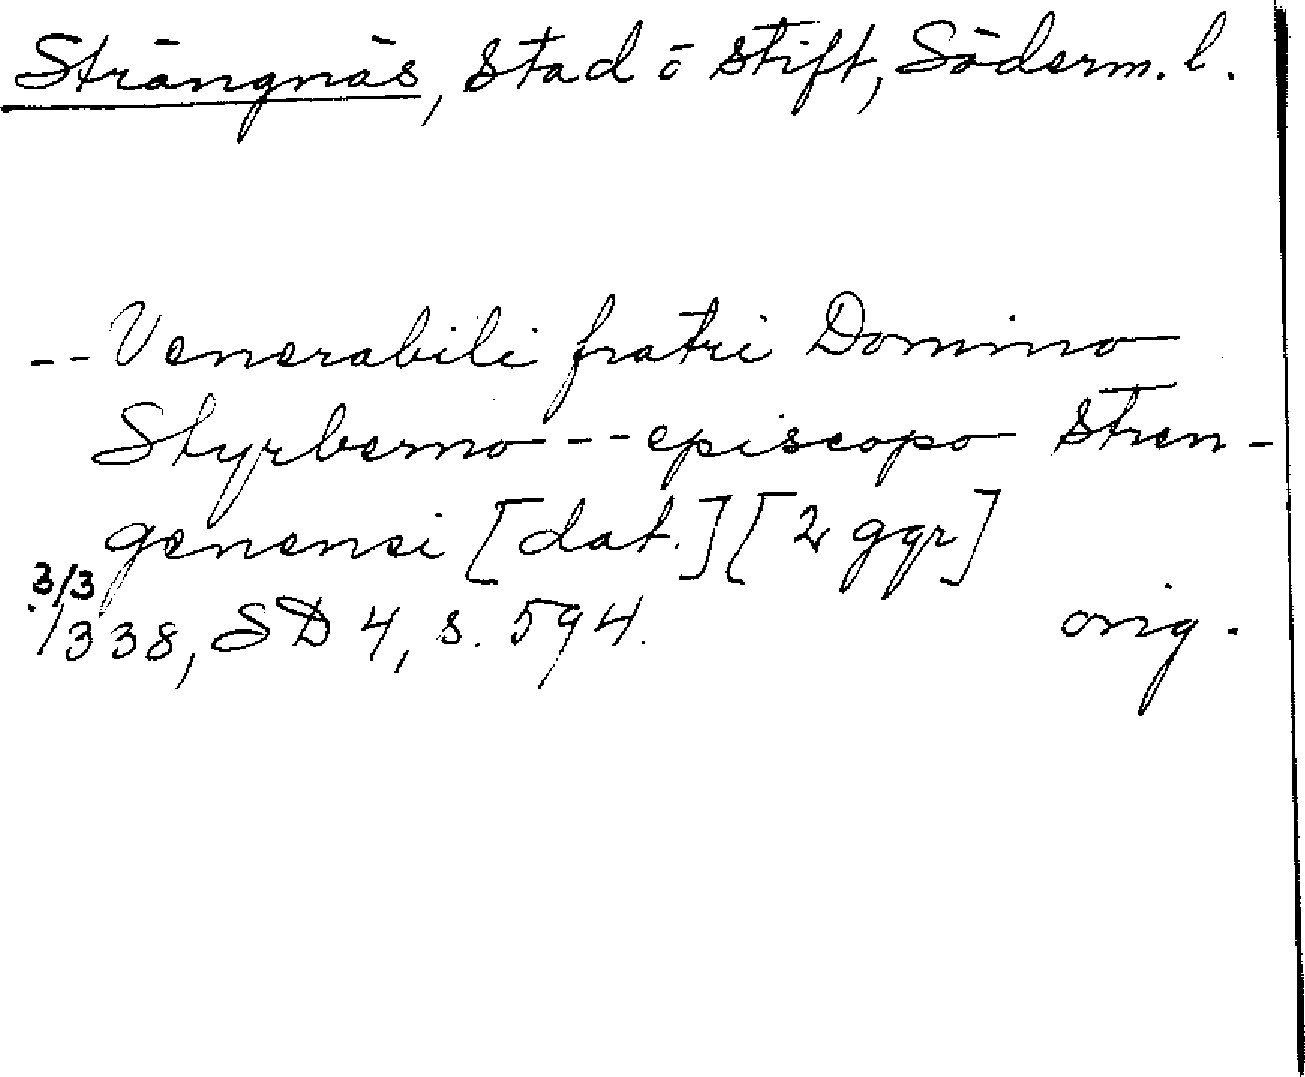 Strängnäs, stad ō stift, Söderm. l.
-- Venerabili fratri Domino
Styrberno -- episcopo Stren-
genensi [dat.] [2 ggr]
3/3
1338, SD 4, s. 594. orig.